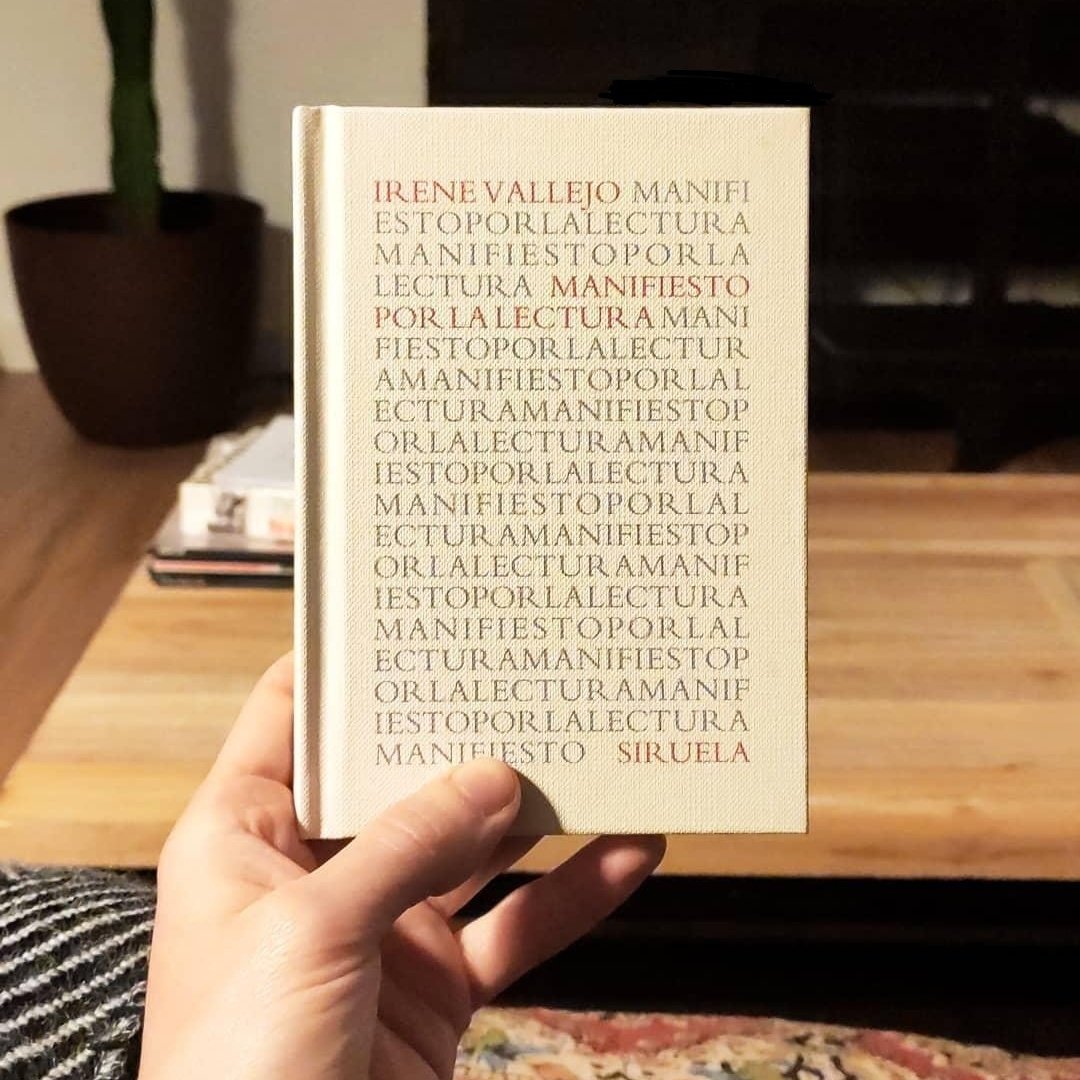 IRENE VALLEJO MANIFI
ESTOPORLALECTURA
MANIFIESTOPORLA
LECTURA MANIFIESTO
POR LA LECTURA MANI
FIESTOPORLALECTUR
AMANIFIESTOPORLAL
ECTURAMANIFIESTOP
ORLALECTURAMANIF
IESTOPORLALECTURA
MANIFIESTOPORLAL
ECTURAMANIFIESTOP
ORLALECTURAMANIF
IESTOPORLALECTURA
MANIFIESTOPORLAL
ECTURAMANIFIESTOP
ORLALECTURAMANIF
IESTOPORLALECTURA
MANIFIESTO SIRUELA